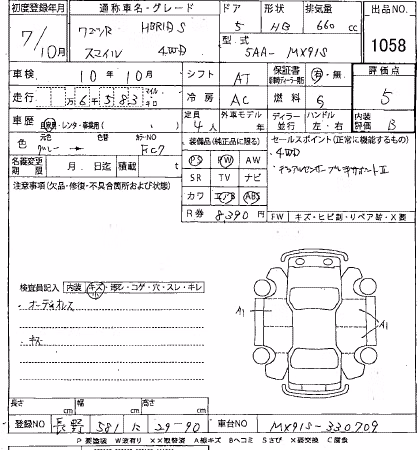 初度登録年月 通称車名・グレード ドア 形状 排気量 出品NO.
7/10月 ワゴンR HBRID S 5 HB 660 cc 1058
スマイル 4WD 型式 5AA- MX91S
車検 10年10月 シフト AT 保証書 有・無 評価点
走行 万6千583 冷房 AC 燃料 G 5
車歴 自家用・レンタ・事業用( ) 定員 4人 外車モデル ディーラー・並行 ハンドル 左・右 内装評価 B
色 グレー → 色替 カラーNO FC7 装備品(純正品に限る) セールスポイント(正常に機能するもの)
名義変更期限 月 日迄 積載 t PS PW AW 4WD
注意事項(欠品・修復・不具合箇所および状態) SR TV ナビ デュアルセンサーブレーキサポートⅡ
カワ エアB ABS
R券 8390円 FW キズ・ヒビ割・リペア跡・X要
検査員記入 内装 キズ・汚レ・コゲ・穴・スレ・キレ
オーディオレス
キズ
A1 A1
長さ cm 幅 cm 高さ cm
登録NO 581 に 29-90 車台NO MX91S-330709
P要塗装 W波有り XX取替済 A線キズ Bヘコミ Sさび X要交換 C腐食